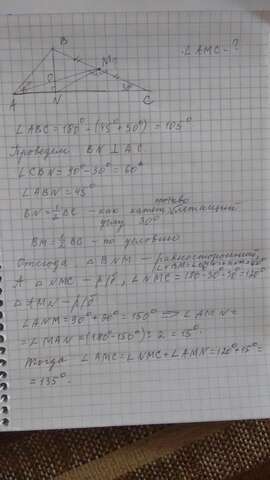 ∠AMC - ?
B
M
O
A
N
C
45°
30°
∠ABC = 180° - (45° + 30°) = 105°
Проведем BN ⊥ AC
∠CBN = 90° - 30° = 60°
∠ABN = 45°
BN = 1/2 BC - как катет, лежащий
против
углу 30°
BM = 1/2 BC - по условию
Отсюда, △BNM - равносторонний
А △NMC - р/б, ∠NMC = 180° - 30° - 30° = 120°
△AMN - р/б
∠ANM = 90° + 60° = 150° ⇒ ∠AMN =
= ∠MAN = (180° - 150°) : 2 = 15°.
Тогда ∠AMC = ∠NMC + ∠AMN = 120° + 15° =
= 135°.